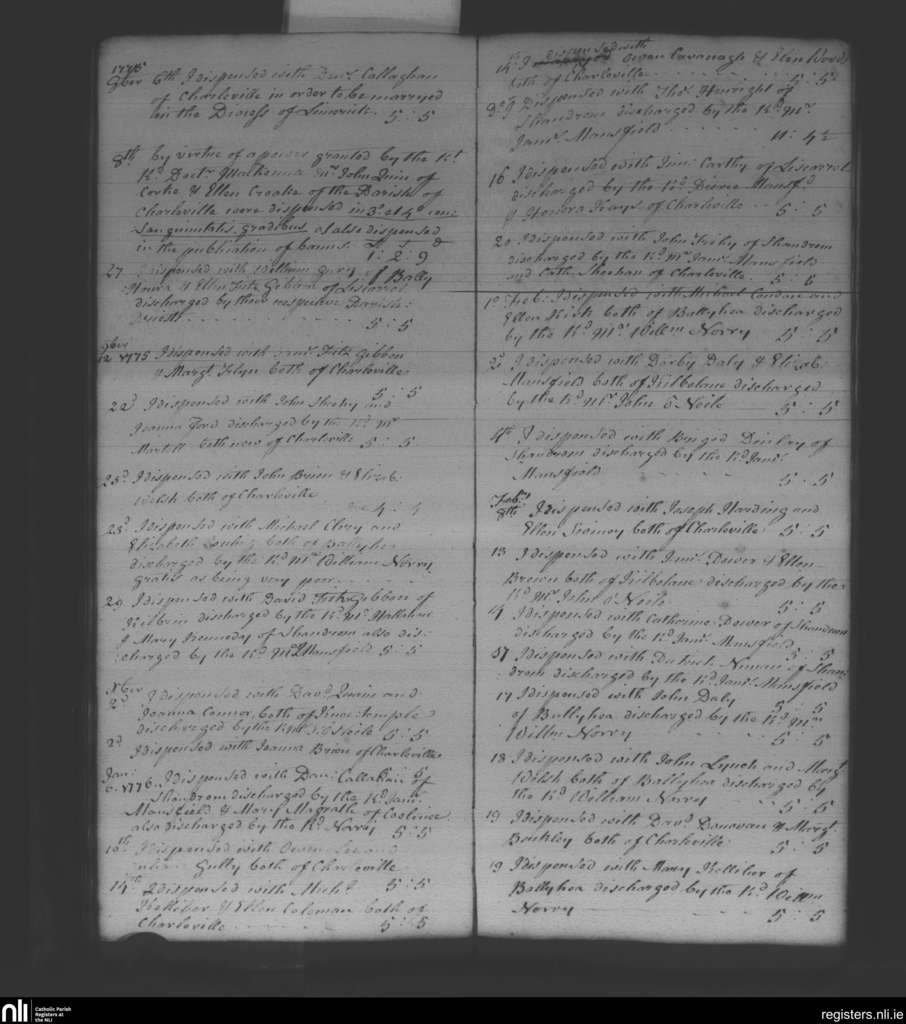 1775
8ber 6th I dispensed with Danl. Callaghan
of Charleville in order to be marryed
in the Diocess of Limerick. 5 : 5
8th by virtue of a power granted by the Rt.
Rd. Doctr. Matt. Kenna Mr. John Quin of
Corke & Ellen Croake of the Parish of
Charleville were dispensed in 3o. et 4o con:
sanguinitatis gradibus as also dispensed
in the publication of banns. £ s d
1 : 2 : 9
27. I dispensed with William Gury of Bally
Houra & Ellen Fitz Gibbon of Liscarrol
discharged by their respective Parish:
Priests 5 : 5
9ber
12 1775 I dispensed with Fitz Gibbon
& Margt. Flyn both of Charleville
5 : 5
22d I dispensed with John Sheehy and
Joanna Ford discharged by the Rd. Mr.
Martell both now of Charleville 5 : 5
25d. I dispensed with John Brien & Elizab:
Welsh both of Charleville
4 : 4
25d. I dispensed with Michael Clery and
Elizabeth both of Ballyhea
discharged by the Rd. Mr. William Norry
gratis as being very poor.
29. I dispensed with David Fitz Gibbon of
Kilbrin discharged by the Rd. Mr.
& Mary Kennedy of Shandrum also dis:
charged by the Rd. Mr. Mansfield 5 : 5
Xber
2d I dispensed with Davd. and
Joanna Connor both of Knocktemple
discharged by the Rd. Mr. 5 : 5
2d. I dispensed with Joanna Brien of Charleville
5
Jan:
6. 1776. I dispensed with Dan: Callahan of
Shandrum discharged by the Rd. Jams.
Mansfield & Mary Magrath of Cooline
also discharged by the Rd. Norry 5 : 5
12th I dispensed with Owen and
Gully both of Charleville
14th I dispensed with Michl. 5 : 5
Kelleher & Ellen Coleman both of
Charleville 5 : 5
14th. I dispensed with Owen Cavanagh & Elin Wood
both of Charleville 5 : 5
Do. I Dispensed with Thos. Enright of
Shandrum discharged by the Rd. Mr.
Jams. Mansfield
11 : 4½
16 I dispensed with Jam: Carthy of Liscarrol
discharged by the Rd. Pierce Mansfd.
& Honora of Charleville 5 : 5
20 I dispensed with John of Shandrum
discharged by the Rd. Mr. Jams. Mansfield
and Cath: Sheehan of Charleville. 5 : 5
1o. Feb. I dispensed with Michael Condon and
Ellen both of Ballyhea discharged
by the Rd. Mr. Willm Norry 5 : 5
2d I dispensed with Darby Daly & Elizab:
Mansfield both of Kilbolane discharged
by the Rd. Mr. John O Neile 5 : 5
4th I dispensed with of
Shandrum discharged by the Rd. Jams.
Mansfield 5 : 5
Feb.
8th I dispensed with Joseph Harding and
Ellen Sweiney both of Charleville 5 : 5
13 I dispensed with Jams. Dower & Ellen
Brown both of Kilbolane discharged by the
Rd. Mr. John O Neile 5 : 5
14 I dispensed with Catherine Dower of Shandrum
discharged by the Rd. Jams. Mansfield
5 : 5
17 I dispensed with Patrick Nunan of Shan:
drum discharged by the Rd. Jams. Mansfield
17 I dispensed with John Daly 5 : 5
of Ballyhea discharged by the Rd. Mr.
Willm Norry 5 : 5
18 I dispensed with John Lynch and Margt.
Welsh both of Ballyhea discharged by
the Rd. William Norry 5 : 5
19 I dispensed with Davd. Donovan & Margt.
Buckley both of Charleville 5 : 5
19 I dispensed with Mary Kelliher of
Ballyhea discharged by the Rd. Willm
Norry 5 : 5
nli
Catholic Parish
Registers at
the NLI
registers.nli.ie